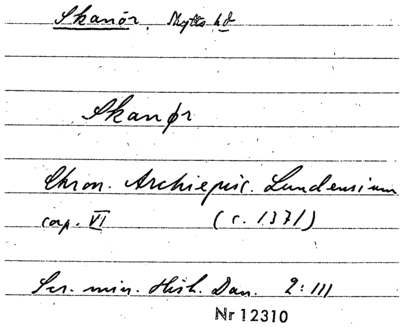 Skanör. Skytts hd
Skanør
Chron. Archiepisc. Lundensium
cap. VI (c. 1371)
Scr. min. Hist. Dan. 2:111
Nr 12310